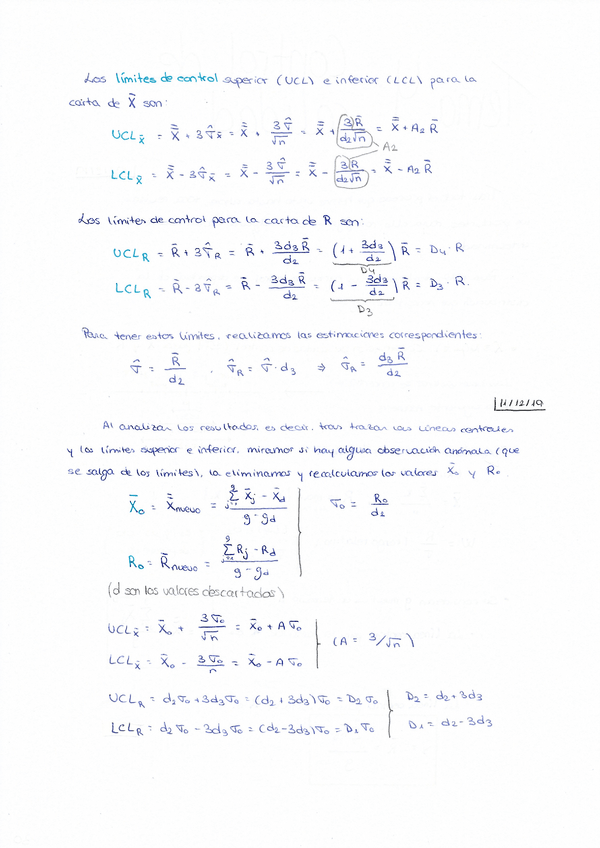 Los límites de control superior (UCL) e inferior (LCL) para la
carta de X̄ son:
UCL_X̄ = X̿ + 3σ̂_X̄ = X̿ + 3σ̂/√n = X̿ + 3R̄/(d₂√n) = X̿ + A₂ R̄
A₂
LCL_X̄ = X̿ - 3σ̂_X̄ = X̿ - 3σ̂/√n = X̿ - 3R̄/(d₂√n) = X̿ - A₂ R̄
Los límites de control para la carta de R son:
UCL_R = R̄ + 3σ̂_R = R̄ + 3d₃R̄/d₂ = (1 + 3d₃/d₂) R̄ = D₄ · R
D₄
LCL_R = R̄ - 3σ̂_R = R̄ - 3d₃R̄/d₂ = (1 - 3d₃/d₂) R̄ = D₃ · R.
D₃
Para tener estos límites, realizamos las estimaciones correspondientes:
σ̂ = R̄/d₂ , σ̂_R = σ̂ · d₃ ⇒ σ̂_R = d₃ R̄/d₂
11/12/19
Al analizar los resultados, es decir, tras trazar las líneas centrales
y los límites superior e inferior, miramos si hay alguna observación anómala (que
se salga de los límites), la eliminamos y recalculamos los valores X̄₀ y R₀
X̄₀ = X̿nuevo = (Σ_{j=1}^g X̄j - X̄d)/(g - gd) σ₀ = R₀/d₂
R₀ = R̄nuevo = (Σ_{j=1}^g Rj - Rd)/(g - gd)
(d son los valores descartados)
UCL_X̄ = X̄₀ + 3σ₀/√n = X̄₀ + A σ₀ (A = 3/√n)
LCL_X̄ = X̄₀ - 3σ₀/n = X̄₀ - A σ₀
UCL_R = d₂σ₀ + 3d₃σ₀ = (d₂ + 3d₃)σ₀ = D₂ σ₀ D₂ = d₂ + 3d₃
LCL_R = d₂ σ₀ - 3d₃ σ₀ = (d₂ - 3d₃)σ₀ = D₁ σ₀ D₁ = d₂ - 3d₃